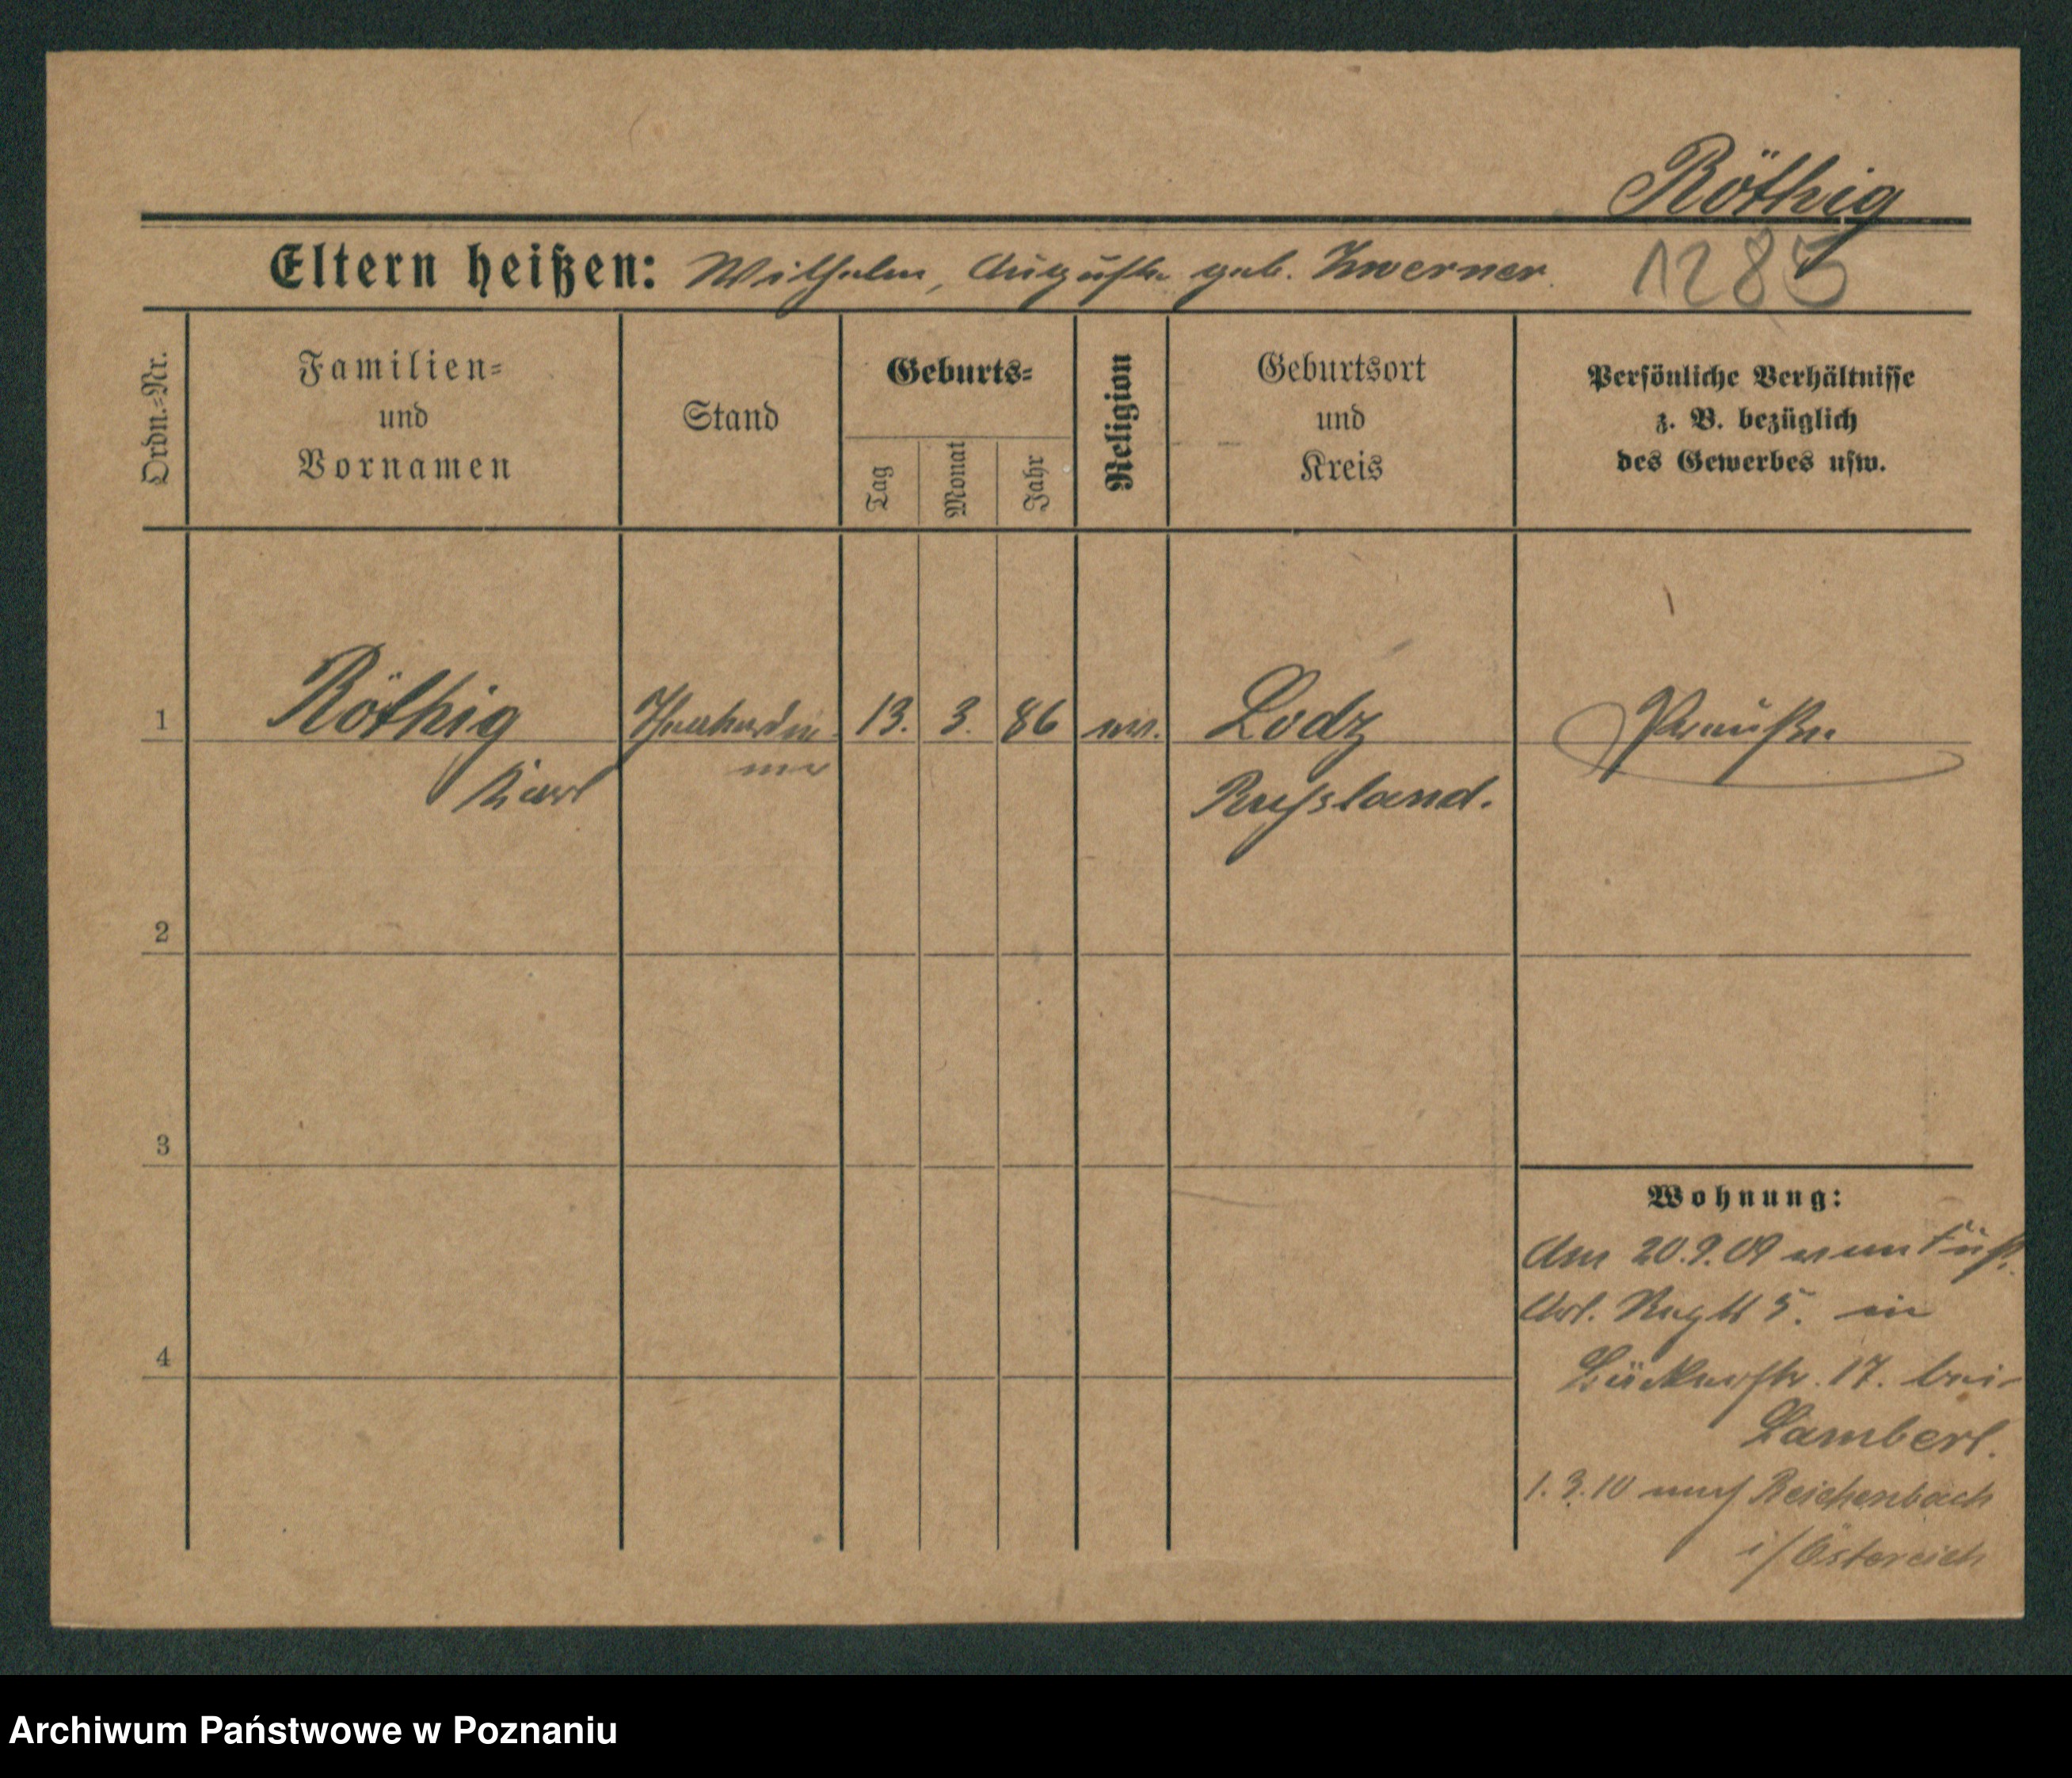 Röthig
Eltern heißen: Wilhelm, Auguste geb. Zwerner.
1285
Ordn.-Nr.
Familien-
und
Vornamen
Stand
Geburts-
Tag
Monat
Jahr
Religion
Geburtsort
und
Kreis
Persönliche Verhältnisse
z. B. bezüglich
des Gewerbes usw.
1
Röthig
Karl
13. 3. 86 ev.
Lodz
Russland.
Preuße
2
3
4
Wohnung:
Am 20.9.09 vom Fuß.
Art. Regtt 5. in
17. bei
Lambert.
1.3.10 nach Reichenbach
i/Östereich
Archiwum Państwowe w Poznaniu